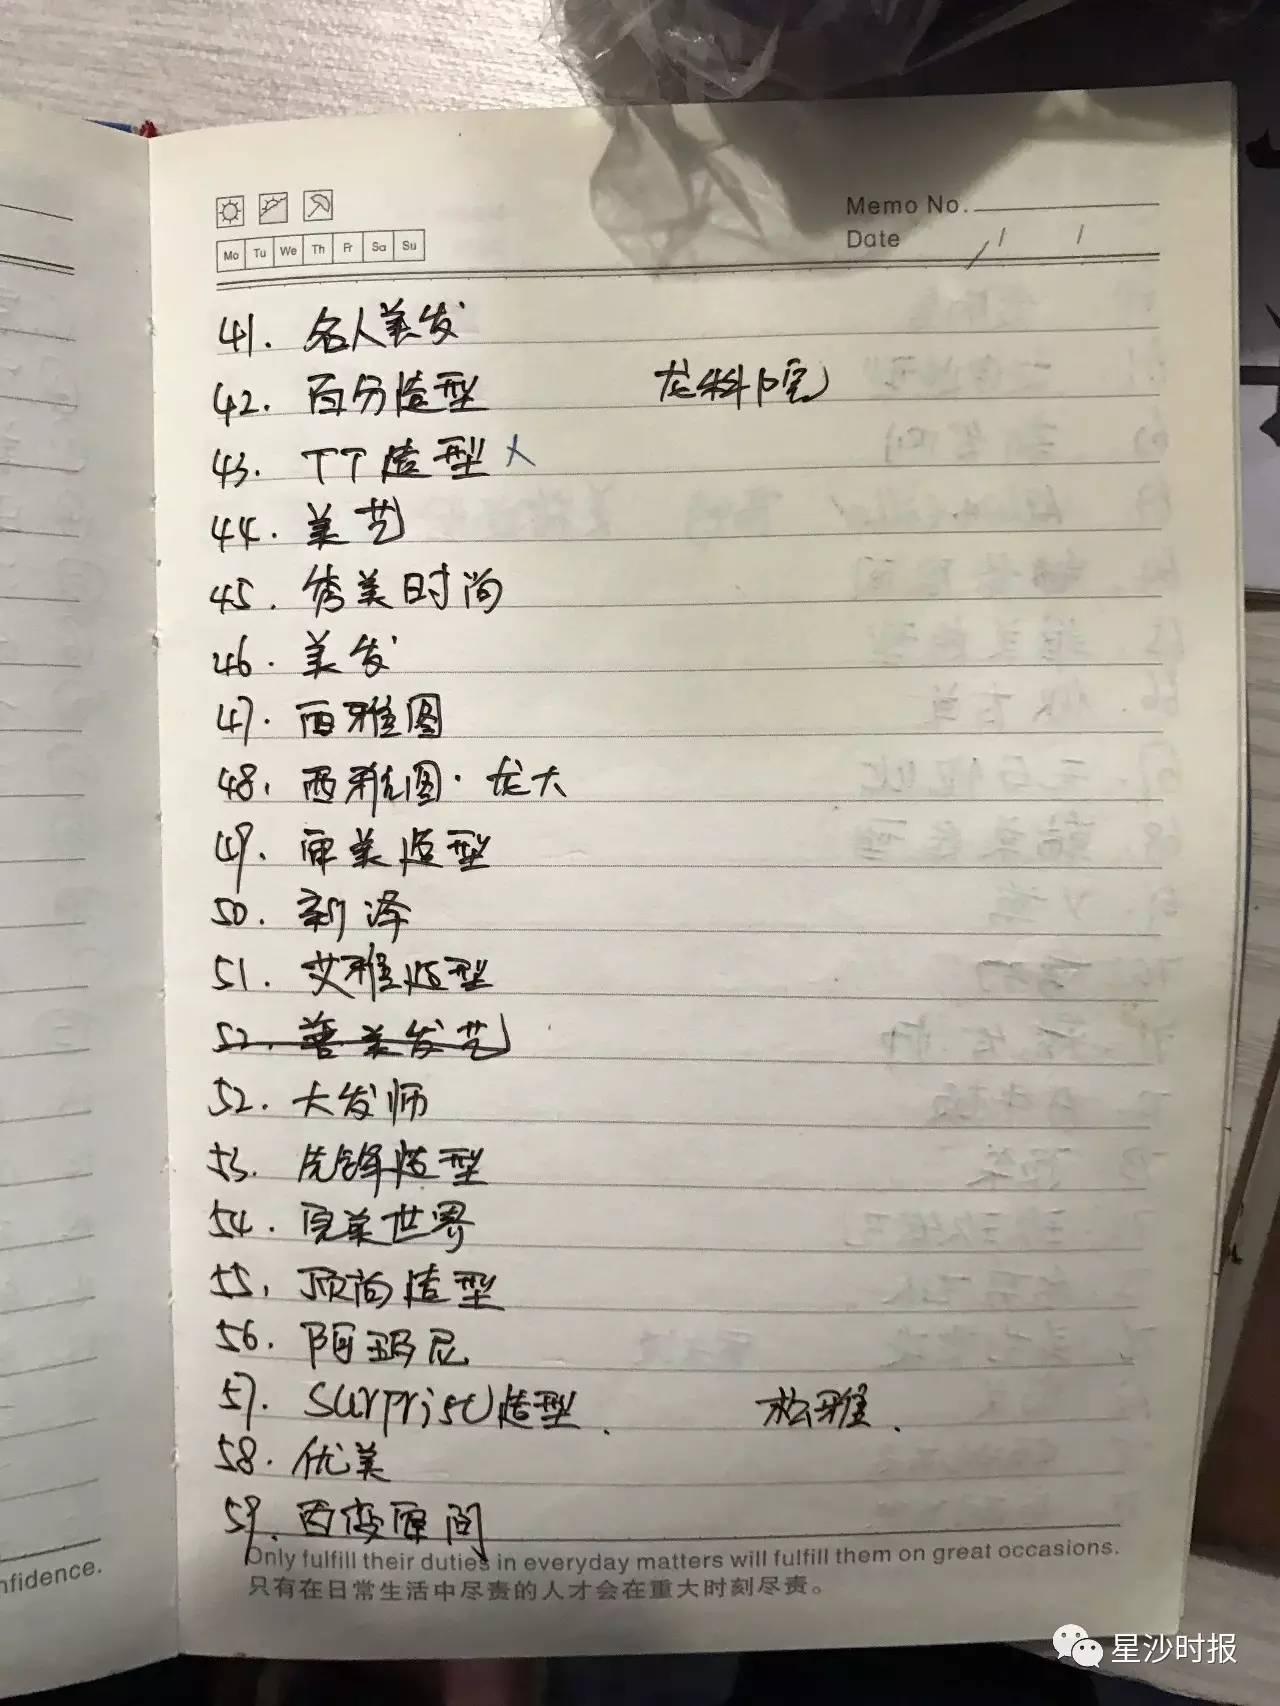 Memo No.
Date / /
Mo Tu We Th Fr Sa Su
41. 名人美发
42. 百分造型 龙科院
43. TT造型 ×
44. 美艺
45. 秀美时尚
46. 美发
47. 西雅图
48. 西雅图·龙大
49. 审美造型
50. 新泽
51. 艾雅造型
52. 善美发艺
52. 大发师
53. 先锋造型
54. 完美世界
55. 顶尚造型
56. 阿玛尼
57. Surprise造型. 松雅.
58. 优美
59. 百变 间
Only fulfill their duties in everyday matters will fulfill them on great occasions.
只有在日常生活中尽责的人才会在重大时刻尽责。
nfidence.
星沙时报